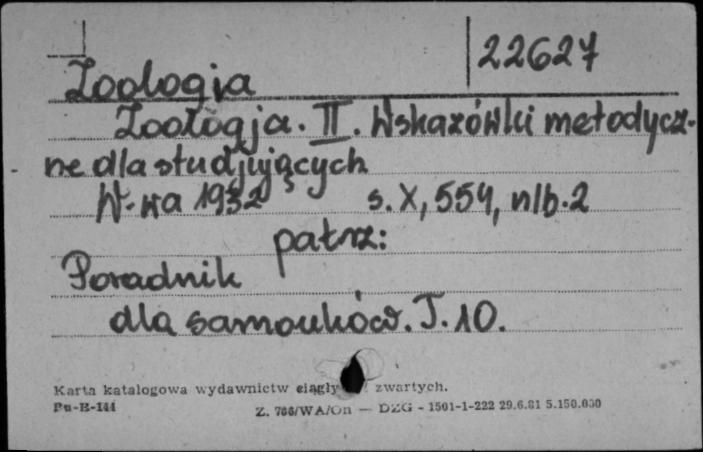 22627
Zoologia
Zoologja. II. Wskazówki metodycz-
ne dla studjujących
W-wa 1932 s. X, 554, nlb. 2
patrz:
Poradnik
dla samouków. T. 10.
Karta katalogowa wydawnictw ciągły zwartych.
Pu-B-144 Z. 766/WA/On — DZG - 1501-1-222 29.6.81 5.150.000